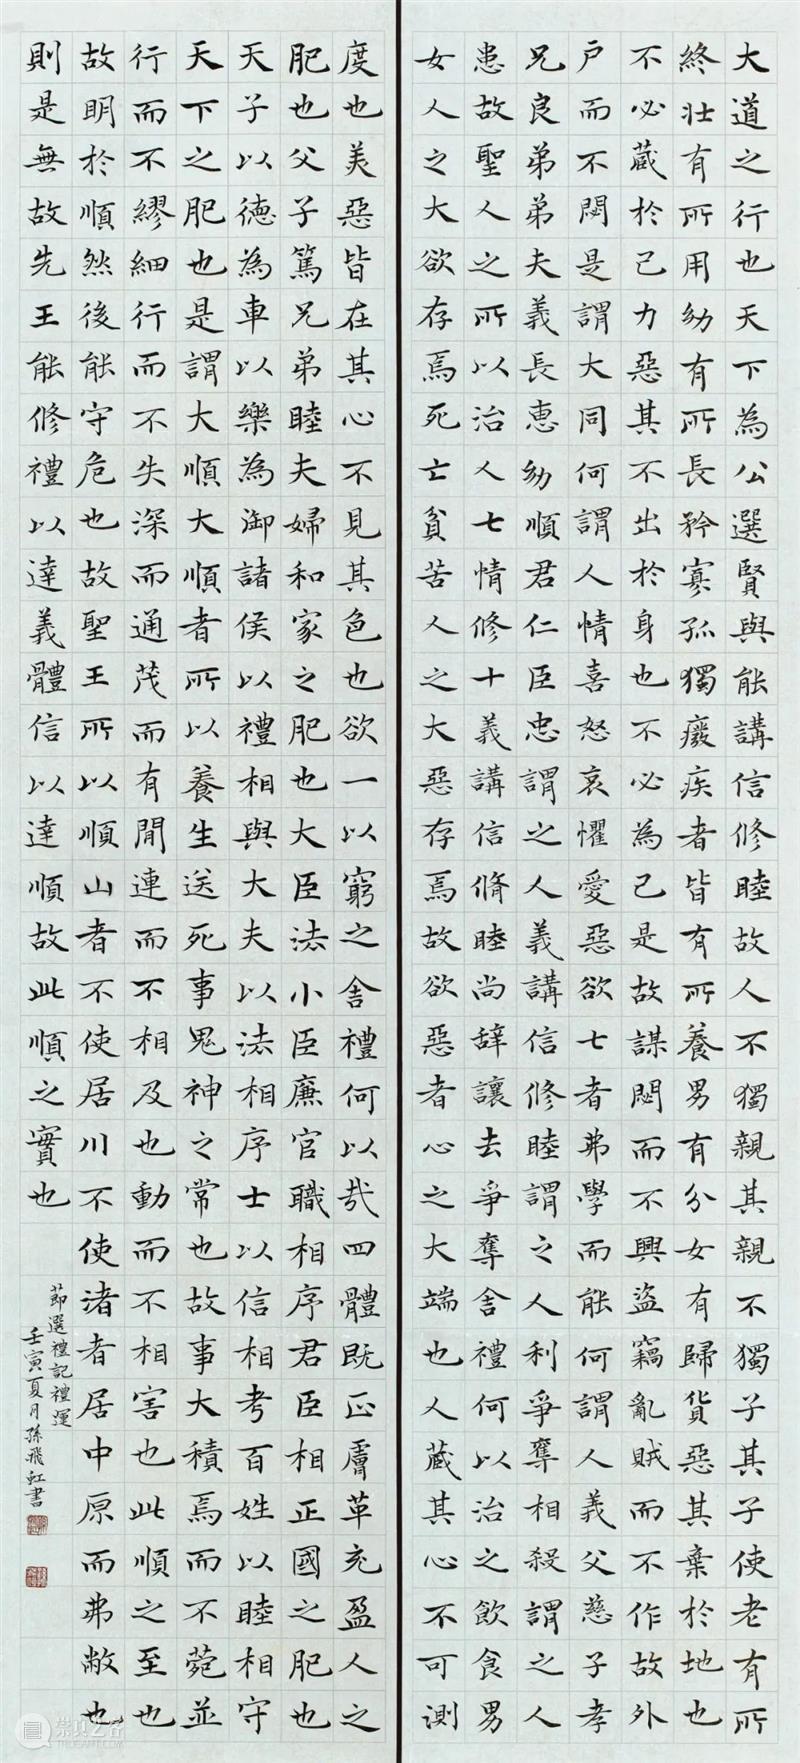 大道之行也天下為公選賢與能講信修睦故人不獨親其親不獨子其子使老有所
終壯有所用幼有所長矜寡孤獨廢疾者皆有所養男有分女有歸貨惡其棄於地也
不必藏於己力惡其不出於身也不必為己是故謀閉而不興盜竊亂賊而不作故外
户而不閉是謂大同何謂人情喜怒哀懼愛惡欲七者弗學而能何謂人義父慈子孝
兄良弟弟夫義長惠幼順君仁臣忠謂之人義講信修睦謂之人利爭奪相殺謂之人
患故聖人之所以治人七情修十義講信脩睦尚辭讓去爭奪舍禮何以治之飲食男
女人之大欲存焉死亡貧苦人之大惡存焉故欲惡者心之大端也人藏其心不可測
度也美惡皆在其心不見其色也欲一以窮之舍禮何以哉四體既正膚革充盈人之
肥也父子篤兄弟睦夫婦和家之肥也大臣法小臣廉官職相序君臣相正國之肥也
天子以德為車以樂為御諸侯以禮相與大夫以法相序士以信相考百姓以睦相守
天下之肥也是謂大順大順者所以養生送死事鬼神之常也故事大積焉而不菀並
行而不繆細行而不失深而通茂而有間連而不相及也動而不相害也此順之至也
故明於順然後能守危也故聖王所以順山者不使居川不使渚者居中原而弗敝也
則是無故先王能修禮以達義體信以達順故此順之實也
節選禮記禮運
壬寅夏月孫飛虹書
崇真艺客